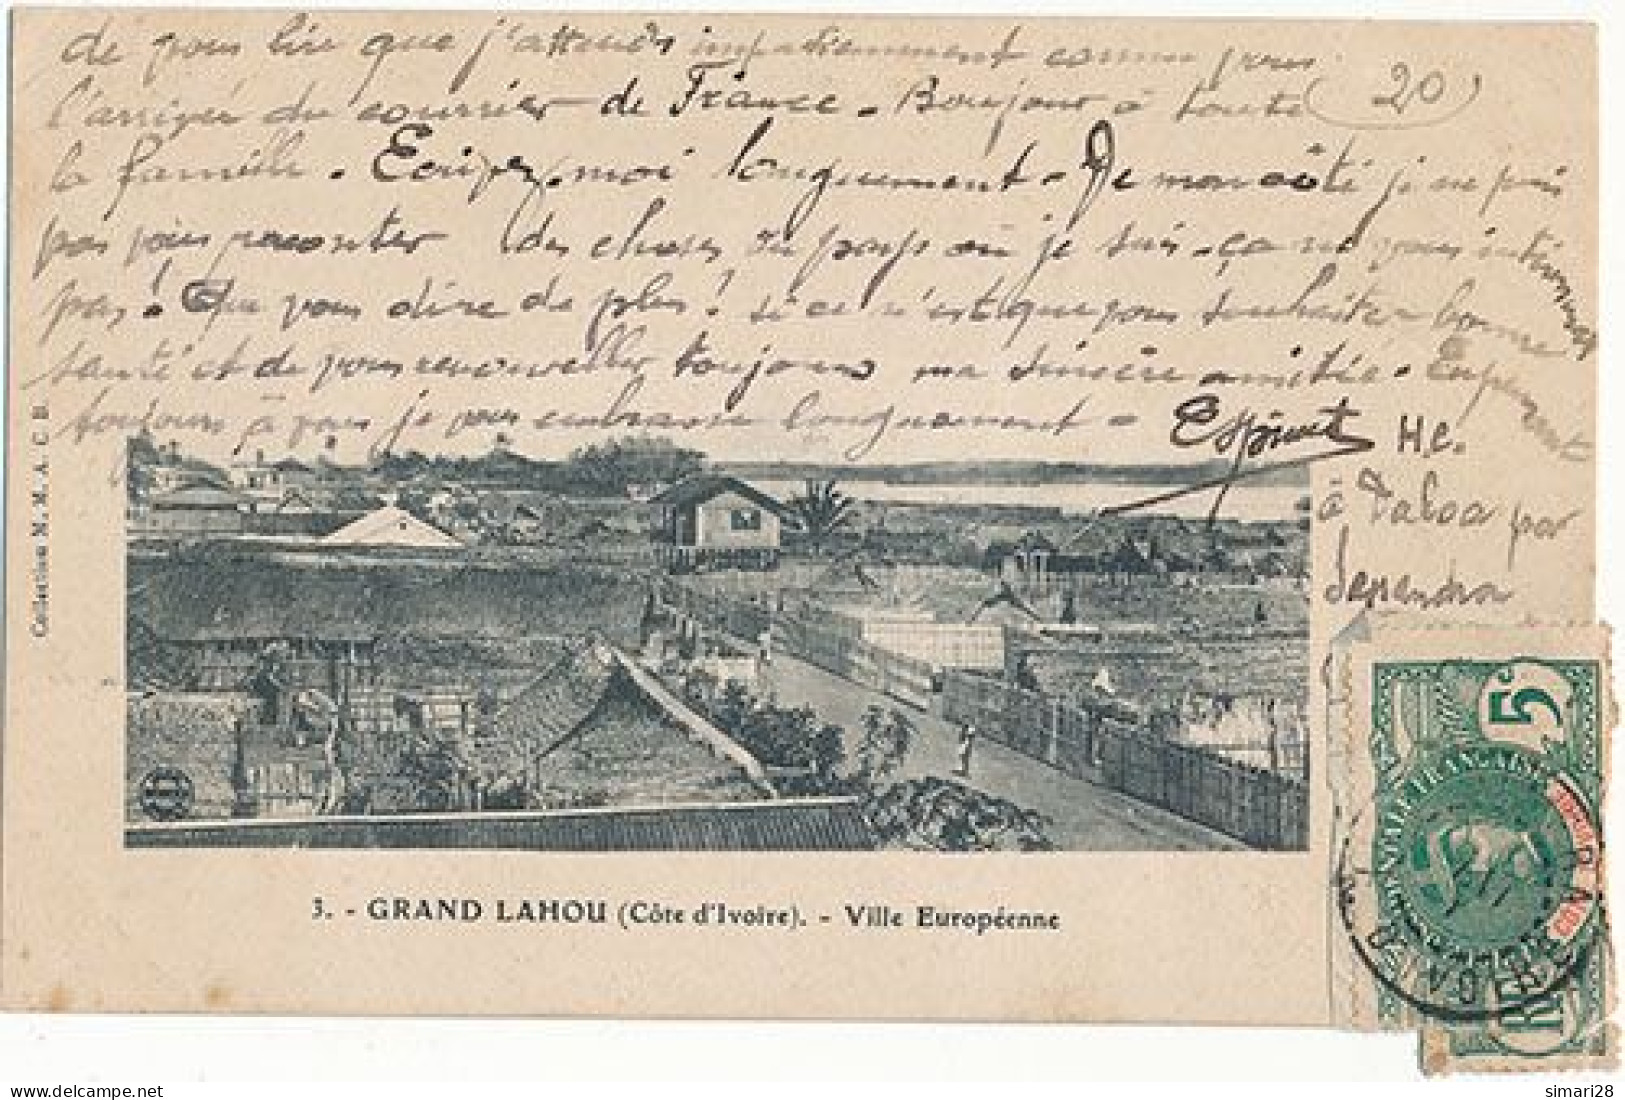 de vous lire que j'attends impatiemment comme vous
l'arrivée du courrier de France - Bonjour à toute (20)
la famille. Ecrivez-moi longuement - De mon côté je ne puis
pas vous raconter des choses du pays où je suis - ça ne vous intéresse
pas! Que vous dire de plus! si ce n'est que vous souhaiter bonne
santé et de vous renouveller toujours ma sincère amitié.
toujours à vous je vous embrasse longuement -
Espinet
H.C.
à Daloa par
Collection N. M. A. C. B.
3. - GRAND LAHOU (Côte d'Ivoire). - Ville Européenne
5
AFRIQUE OCCIDENTALE FRANÇAISE
simari28